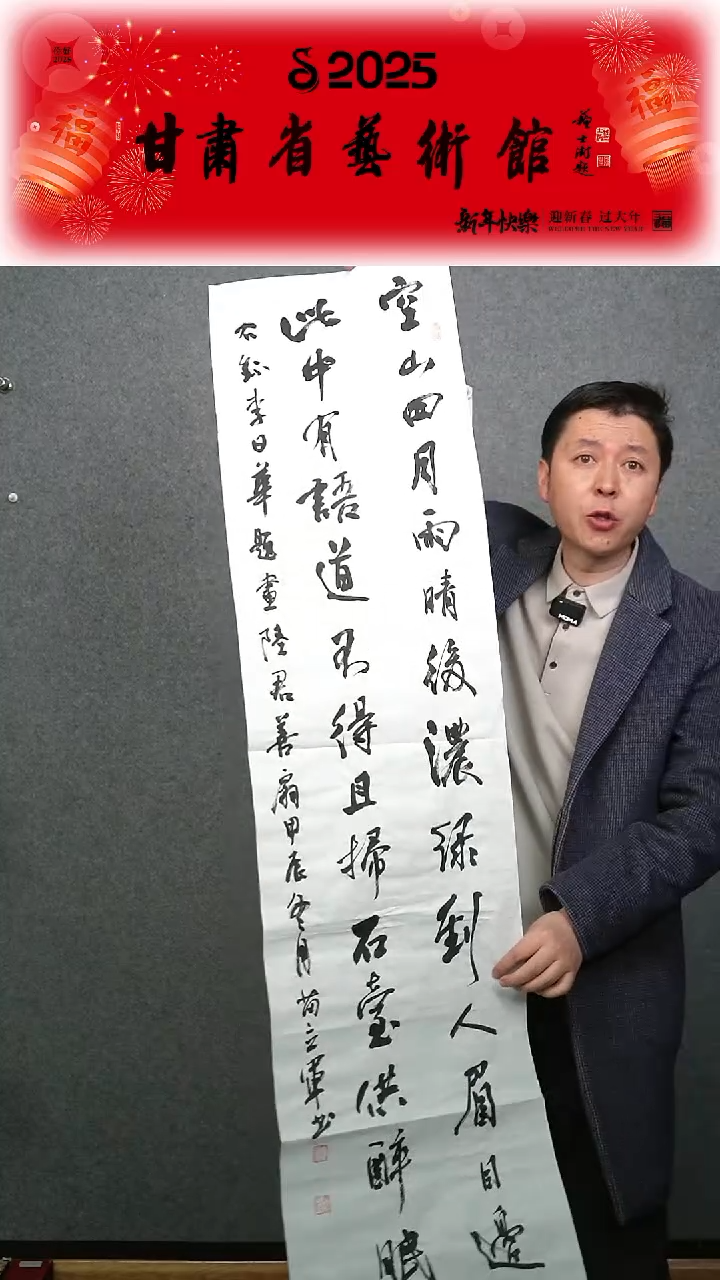 2025
甘肅省藝術館
福
福
新年快樂
迎新春 过大年
空山四月雨晴後濃綠到人眉目邊
此中有語道不得且掃石臺供醉眠
右錄李日華題畫陸君善扇甲辰冬月苗立軍书